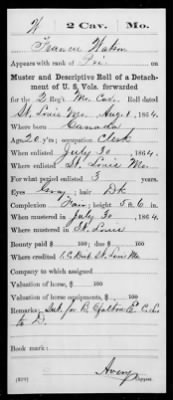 W 2 Cav. Mo.
Francis Waker
Appears with rank of Pri on
Muster and Descriptive Roll of a Detach-
ment of U. S. Vols. forwarded
for the 2 Reg't Mo. Cav. Roll dated
St. Louis Mo. Aug. 1, 1864.
Where born Canada
Age 20 y'rs; occupation Clerk
When enlisted July 30, 1864.
Where enlisted St. Louis Mo.
For what period enlisted 3 years.
Eyes Gray; hair Dk
Complexion Fair; height 5 ft. 6 in.
When mustered in July 30, 1864.
Where mustered in St. Louis
Bounty paid $ 100; due $ 100
Where credited 1. C. Dist. St. Louis Mo
Company to which assigned
Valuation of horse, $ 100
Valuation of horse equipments, $ 100
Remarks: Sub. for
to D.
Book mark:
Avery
Copyist.